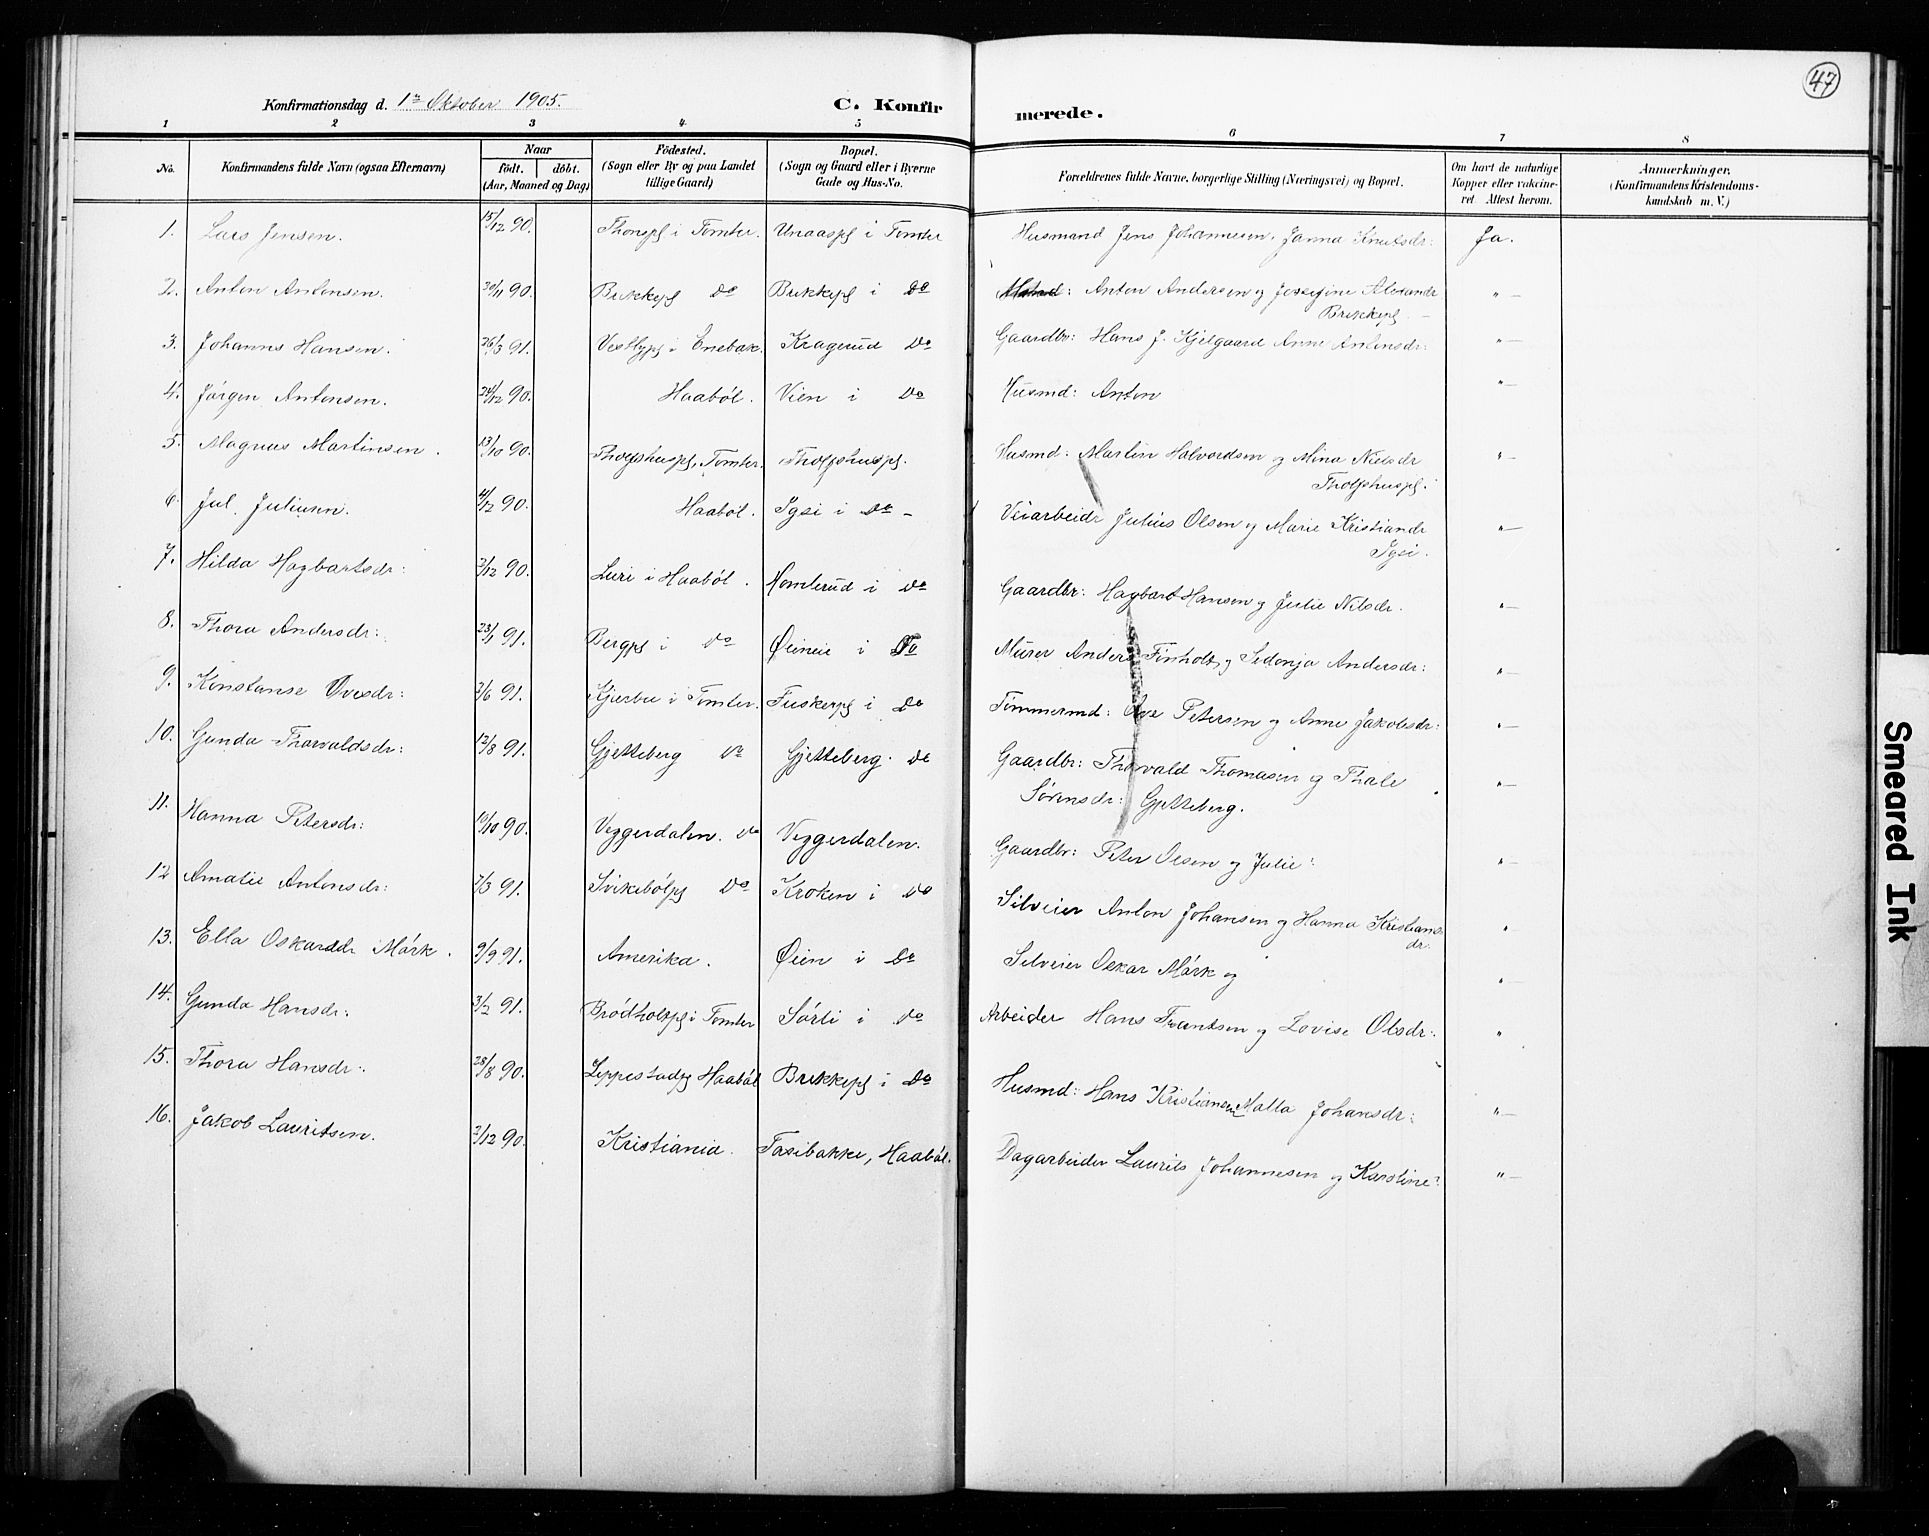 47
Konfirmationsdag d. 1ste Oktober 1905.
C. Konfirmerede.
1 2 3 4 5 6 7 8
No. Konfirmandens fulde Navn (ogsaa Efternavn) Naar født. døbt. (Aar, Maaned og Dag) Fødested. (Sogn eller By og paa Landet tillige Gaard) Bopæl. (Sogn og Gaard eller i Byerne Gade og Hus-No. Forældrenes fulde Navne, borgerlige Stilling (Næringsvei) og Bopæl. Om havt de naturlige Kopper eller vakcineret. Attest herom. Anmærkninger. (Konfirmandens Kristendomskundskab m. V.)
1. Lars Jensen. 15/12 90. Thonspl i Tomter. Unaaspl i Tomter Husmand Jens Johannesen. Janna Knutsdr: Ja.
2. Anton Antonsen. 30/11 90. Brekkepl do Brekkepl i do Anton Andersen og Josefine Alexandr "—
Brekkepl
3. Johanns Hansen. 26/3 91. Vestbypl i Enebak. Kragerud do Gaardbr: Hans J. Kjelgaard Anne Antonsdr: "—
4. Jørgen Antonsen. 24/12 90. Haabøl. Vien i do Husmd: Anton "—
5. Magnus Martinsen. 13/10 90. Tholfshuspl, Tomter. Tholfshuspl. Husmd: Martin Halvordsen og Mina Nielsdr "—
Tholfshuspl.
6. Jul Juliussn. 4/12 90. Haabøl. Igsi i do - Veiarbeidr Julius Olsen og Marie Kristiandr "—
Igsi.
7. Hilda Hagbartsdr: 2/12 90. Luri i Haabøl. Homterud i do Gaardbr: Hagbart Hansen og Julie Nilsdr. "—
8. Thora Andersdr: 23/1 91. Bergpl i do Øieneie i do Murer Anders Finholt og Sedonja Andersdr: "—
9. Konstanse Ovesdr: 2/6 91. Kjærbu i Tomter. Fuskerpl i do Tømmermd: Ove Petersen og Anne Jakobsdr: "—
10. Gunda Thorvaldsdr: 12/8 91. Gjetteberg do Gjetteberg. do Gaardbr: Thorvald Thomasen og Thale "—
Sørensdr: Gjetteberg.
11. Hanna Petersdr: 10/10 90. Veggerdalen. do Veggerdalen. Gaardbr: Peter Olsen og Julie? "—
12 Amalie Antonsdr: 7/3 91. Svikebølpl do Kroken i do Selveier Anton Johansen og Hanna Kristiansdr: "
13. Ella Oskarddr Mørk. 9/9 91. Amerika. Øien i do Selveier Oskar Mørk og "—
14. Gunda Hansdr: 3/2 91. Brødholtpl i Tomter Sørli i do Arbeider Hans Frantsen og Lovise Olsdr: "
15. Thora Hansdr: 28/8 90. Leppestadpl Haabøl Brekkepl i do Husmd: Hans Kristiansen Malla Johansdr: "—
16. Jakob Lauritsen. 2/12 90. Kristiania. Tasibakke, Haabøl. Dagarbeider Laurits Johannesen og Karoline? "—
Smeared Ink